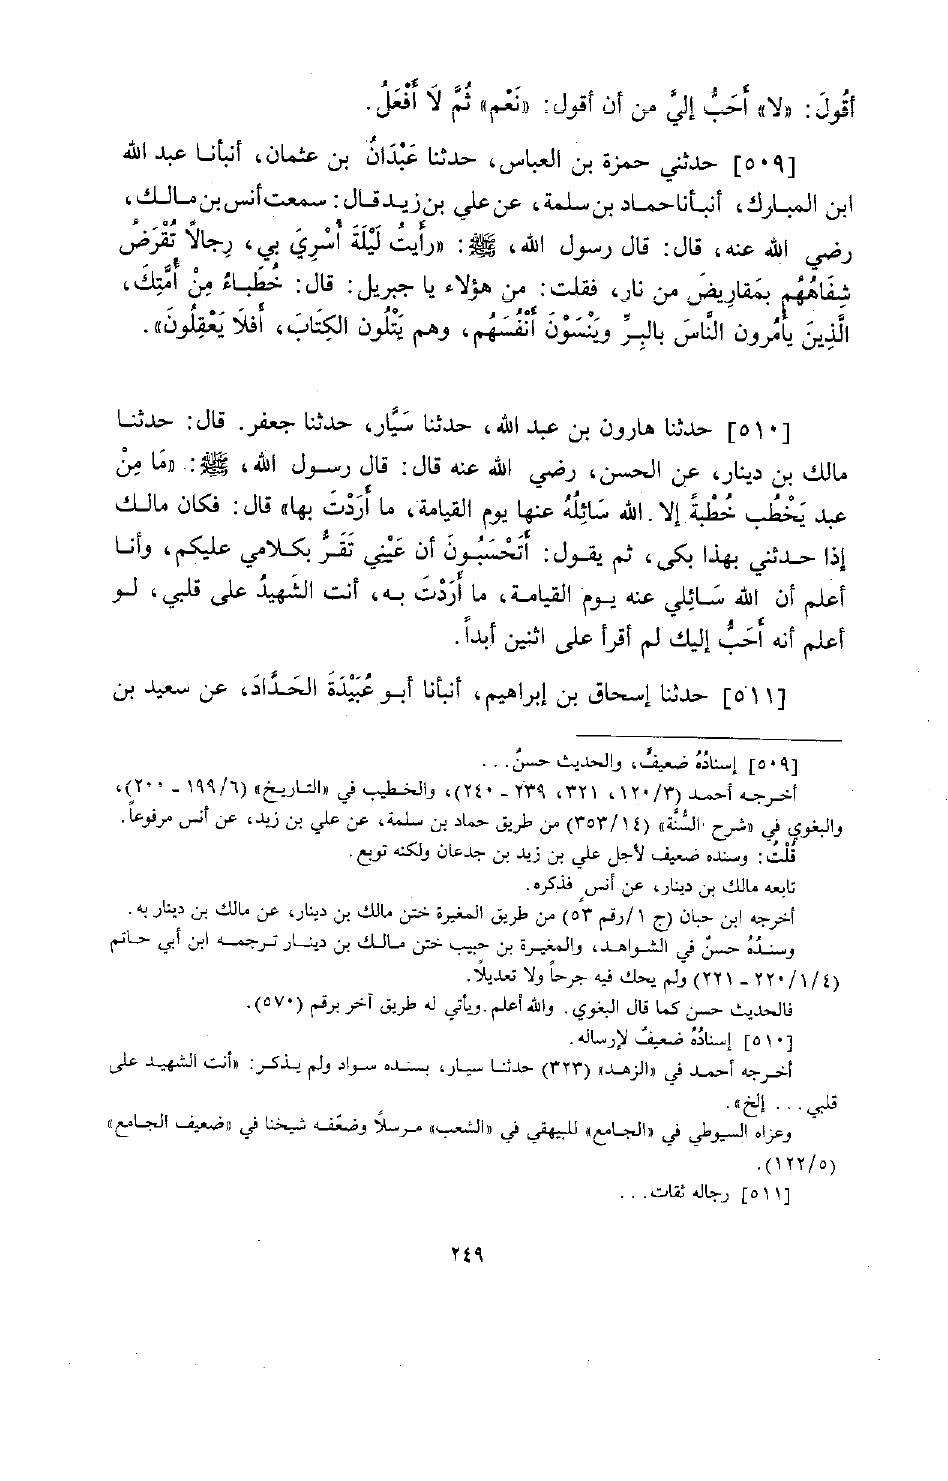 أقُولَ: «لا» أَحَبُّ إليَّ من أن أقول: «نَعْم» ثُمَّ لَا أَفْعَلُ.
[٥٠٩] حدثني حمزة بن العباس، حدثنا عَبْدَانُ بن عثمان، أنبأنا عبد الله
ابن المبارك، أنبأنا حماد بن سلمة، عن علي بن زيد قال: سمعت أنس بن مالك،
رضي الله عنه، قال: قال رسول الله، ﷺ: «رأيتُ لَيْلَةَ أُسْرِيَ بي، رِجالاً تُقْرَضُ
شِفَاهُهُم بمَقاريضَ من نار، فقلت: من هؤلاء يا جبريل: قال: خُطَباءُ مِنْ أُمَّتِكَ،
الَّذِينَ يأمُرون النَّاسَ بالبِرِّ ويَنْسَوْنَ أَنْفُسَهُم، وهم يَتْلُون الكِتَابَ، أفَلَا يَعْقِلُونَ».
[٥١٠] حدثنا هارون بن عبد الله، حدثنا سَيَّار، حدثنا جعفر. قال: حدثنا
مالك بن دينار، عن الحسن، رضي الله عنه قال: قال رسول الله، ﷺ: «مَا مِنْ
عبد يَخْطُب خُطْبةً إلا الله سَائِلُهُ عنها يوم القيامة، ما أَرَدْتَ بها» قال: فكان مالك
إذا حدثني بهذا بكى، ثم يقول: أَتَحْسَبُونَ أن عَيْنِي تَقَرُّ بكلامي عليكم، وأنا
أعلم أن الله سَائِلي عنه يوم القيامة، ما أَرَدْتَ به، أنت الشَهِيدُ على قلبي، لو
أعلم أنه أَحَبُّ إليك لم أقرأ على اثنين أبداً.
[٥١١] حدثنا إسحاق بن إبراهيم، أنبأنا أبو عُبَيْدَةَ الحَدَّادَ، عن سعيد بن
[٥٠٩] إسنادُهُ ضعيفٌ، والحديث حسنٌ...
أخرجه أحمد (٣/ ١٢٠، ٣٢١، ٢٣٩ - ٢٤٠)، والخطيب في «التاريخ» (٦/ ١٩٩ - ٢٠٠)،
والبغوي في «شرح السُّنَّة» (١٤/ ٣٥٣) من طريق حماد بن سلمة، عن علي بن زيد، عن أنس مرفوعاً.
قُلْتُ: وسنده ضعيف لأجل علي بن زيد بن جدعان ولكنه توبع.
تابعه مالك بن دينار، عن أنسٍ فذكره.
أخرجه ابن حبان (ج ١/ رقم ٥٣) من طريق المغيرة ختن مالك بن دينار، عن مالك بن دينار به.
وسندُهُ حسنٌ في الشواهد، والمغيرة بن حبيب ختن مالك بن دينار ترجمه ابن أبي حاتم
(٤/ ١/ ٢٢٠ - ٢٢١) ولم يحك فيه جرحاً ولا تعديلاً.
فالحديث حسن كما قال البغوي. والله أعلم. ويأتي له طريق آخر برقم (٥٧٠).
[٥١٠] إسنادُهُ ضعيفٌ لإرساله.
أخرجه أحمد في «الزهد» (٣٢٣) حدثنا سيار، بسنده سواد ولم يذكر: «أنت الشهيد على
قلبي... إلخ».
وعزاه السيوطي في «الجامع» للبيهقي في «الشعب» مرسلاً وضعّفه شيخنا في «ضعيف الجامع»
(٥/ ١٢٢).
[٥١١] رجاله ثقات...
٢٤٩